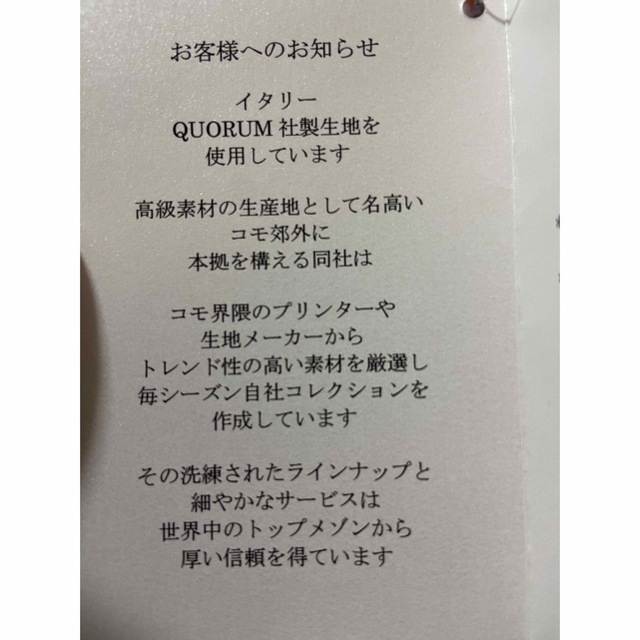 お客様へのお知らせ
イタリー
QUORUM 社製生地を
使用しています
高級素材の生産地として名高い
コモ郊外に
本拠を構える同社は
コモ界隈のプリンターや
生地メーカーから
トレンド性の高い素材を厳選し
毎シーズン自社コレクションを
作成しています
その洗練されたラインナップと
細やかなサービスは
世界中のトップメゾンから
厚い信頼を得ています